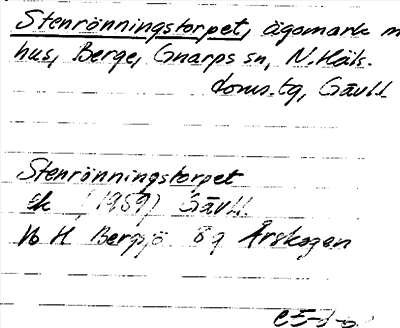 Stenrönningstorpet, ägomark m
hus, Berge, Gnarps sn, N. Häls.
doms.tg, Gävl.l.
Stenrönningstorpet
ek (1959) Gävl.l.
16 H Bergsjö 8 g Årskogen